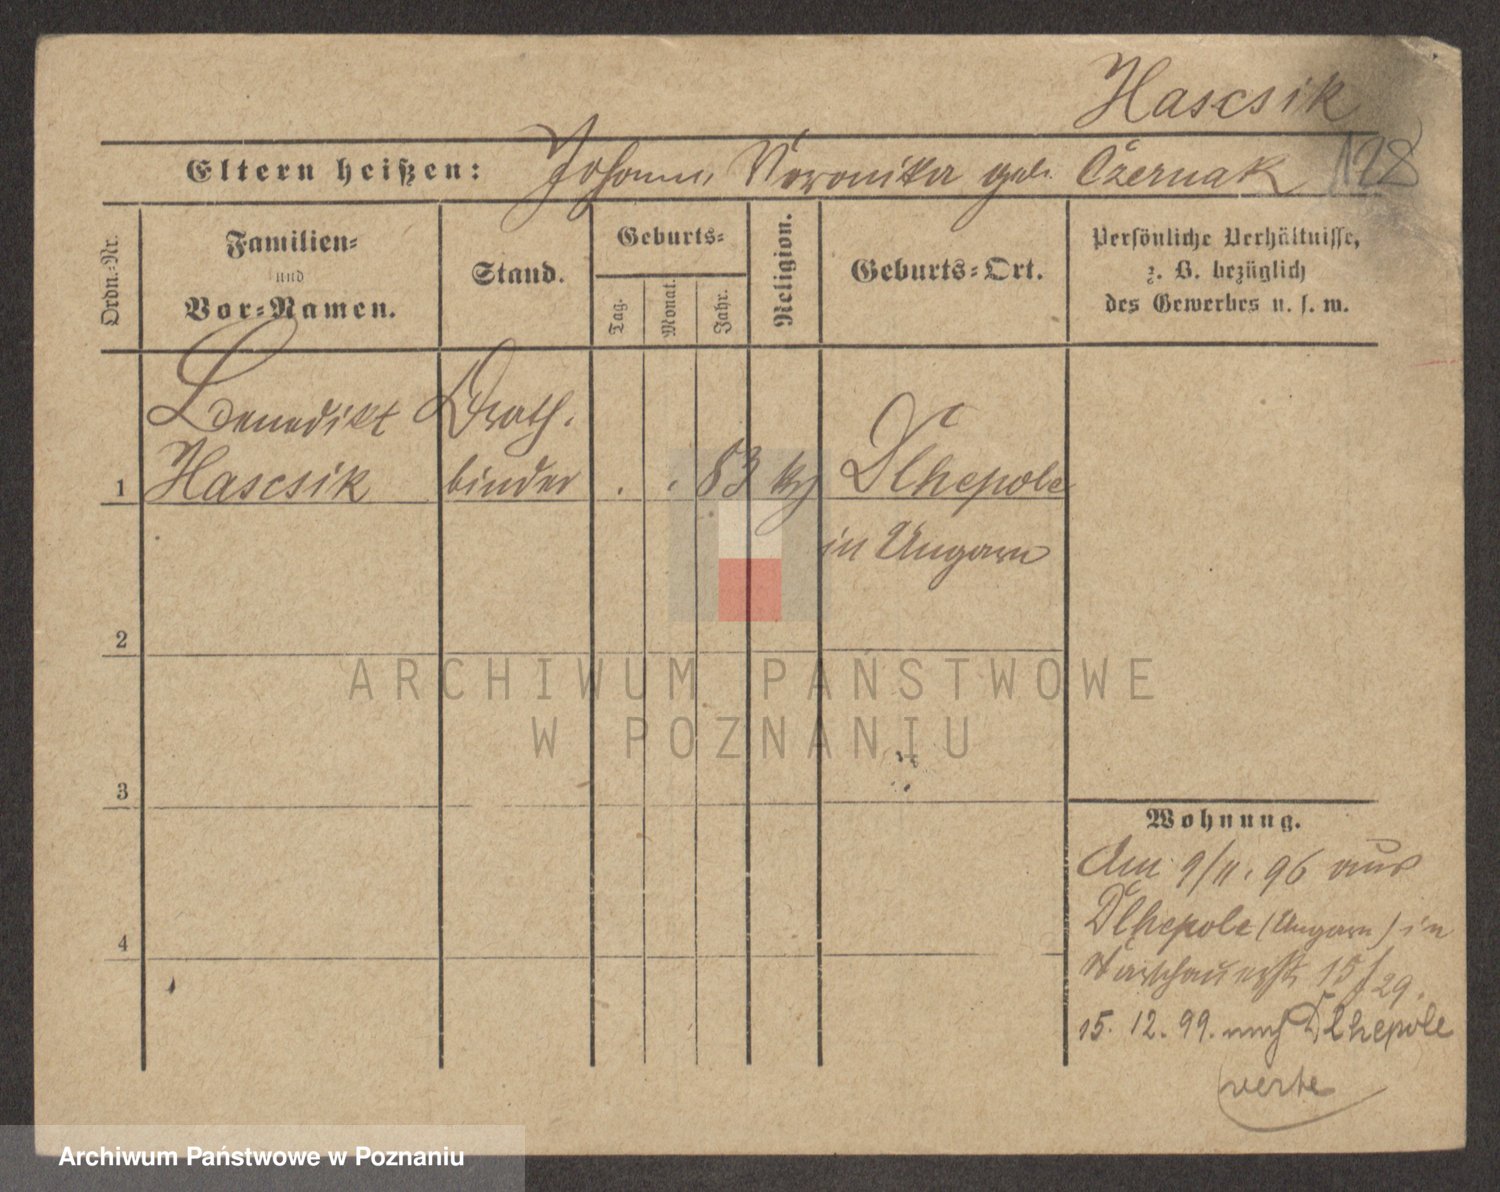 Hascsik
Eltern heißen: Johann, Veronika geb. Czernak
128
Ordn.-Nr.
Familien-
und
Vor-Namen.
Stand.
Geburts-
Tag.
Monat.
Jahr.
Religion.
Geburts-Ort.
Persönliche Verhältnisse,
z. B. bezüglich
des Gewerbes u. s. w.
Benedikt
Hascsik
Drath-
binder
1
. . 83
Dlhepole
in Ungarn
2
3
4
Wohnung.
Am 9/11. 96 aus
Dlhepole (Ungarn) in
Warschauerstr. 15/29.
15. 12. 99. nach Dlhepole
verte
ARCHIWUM PAŃSTWOWE
W POZNANIU
Archiwum Państwowe w Poznaniu